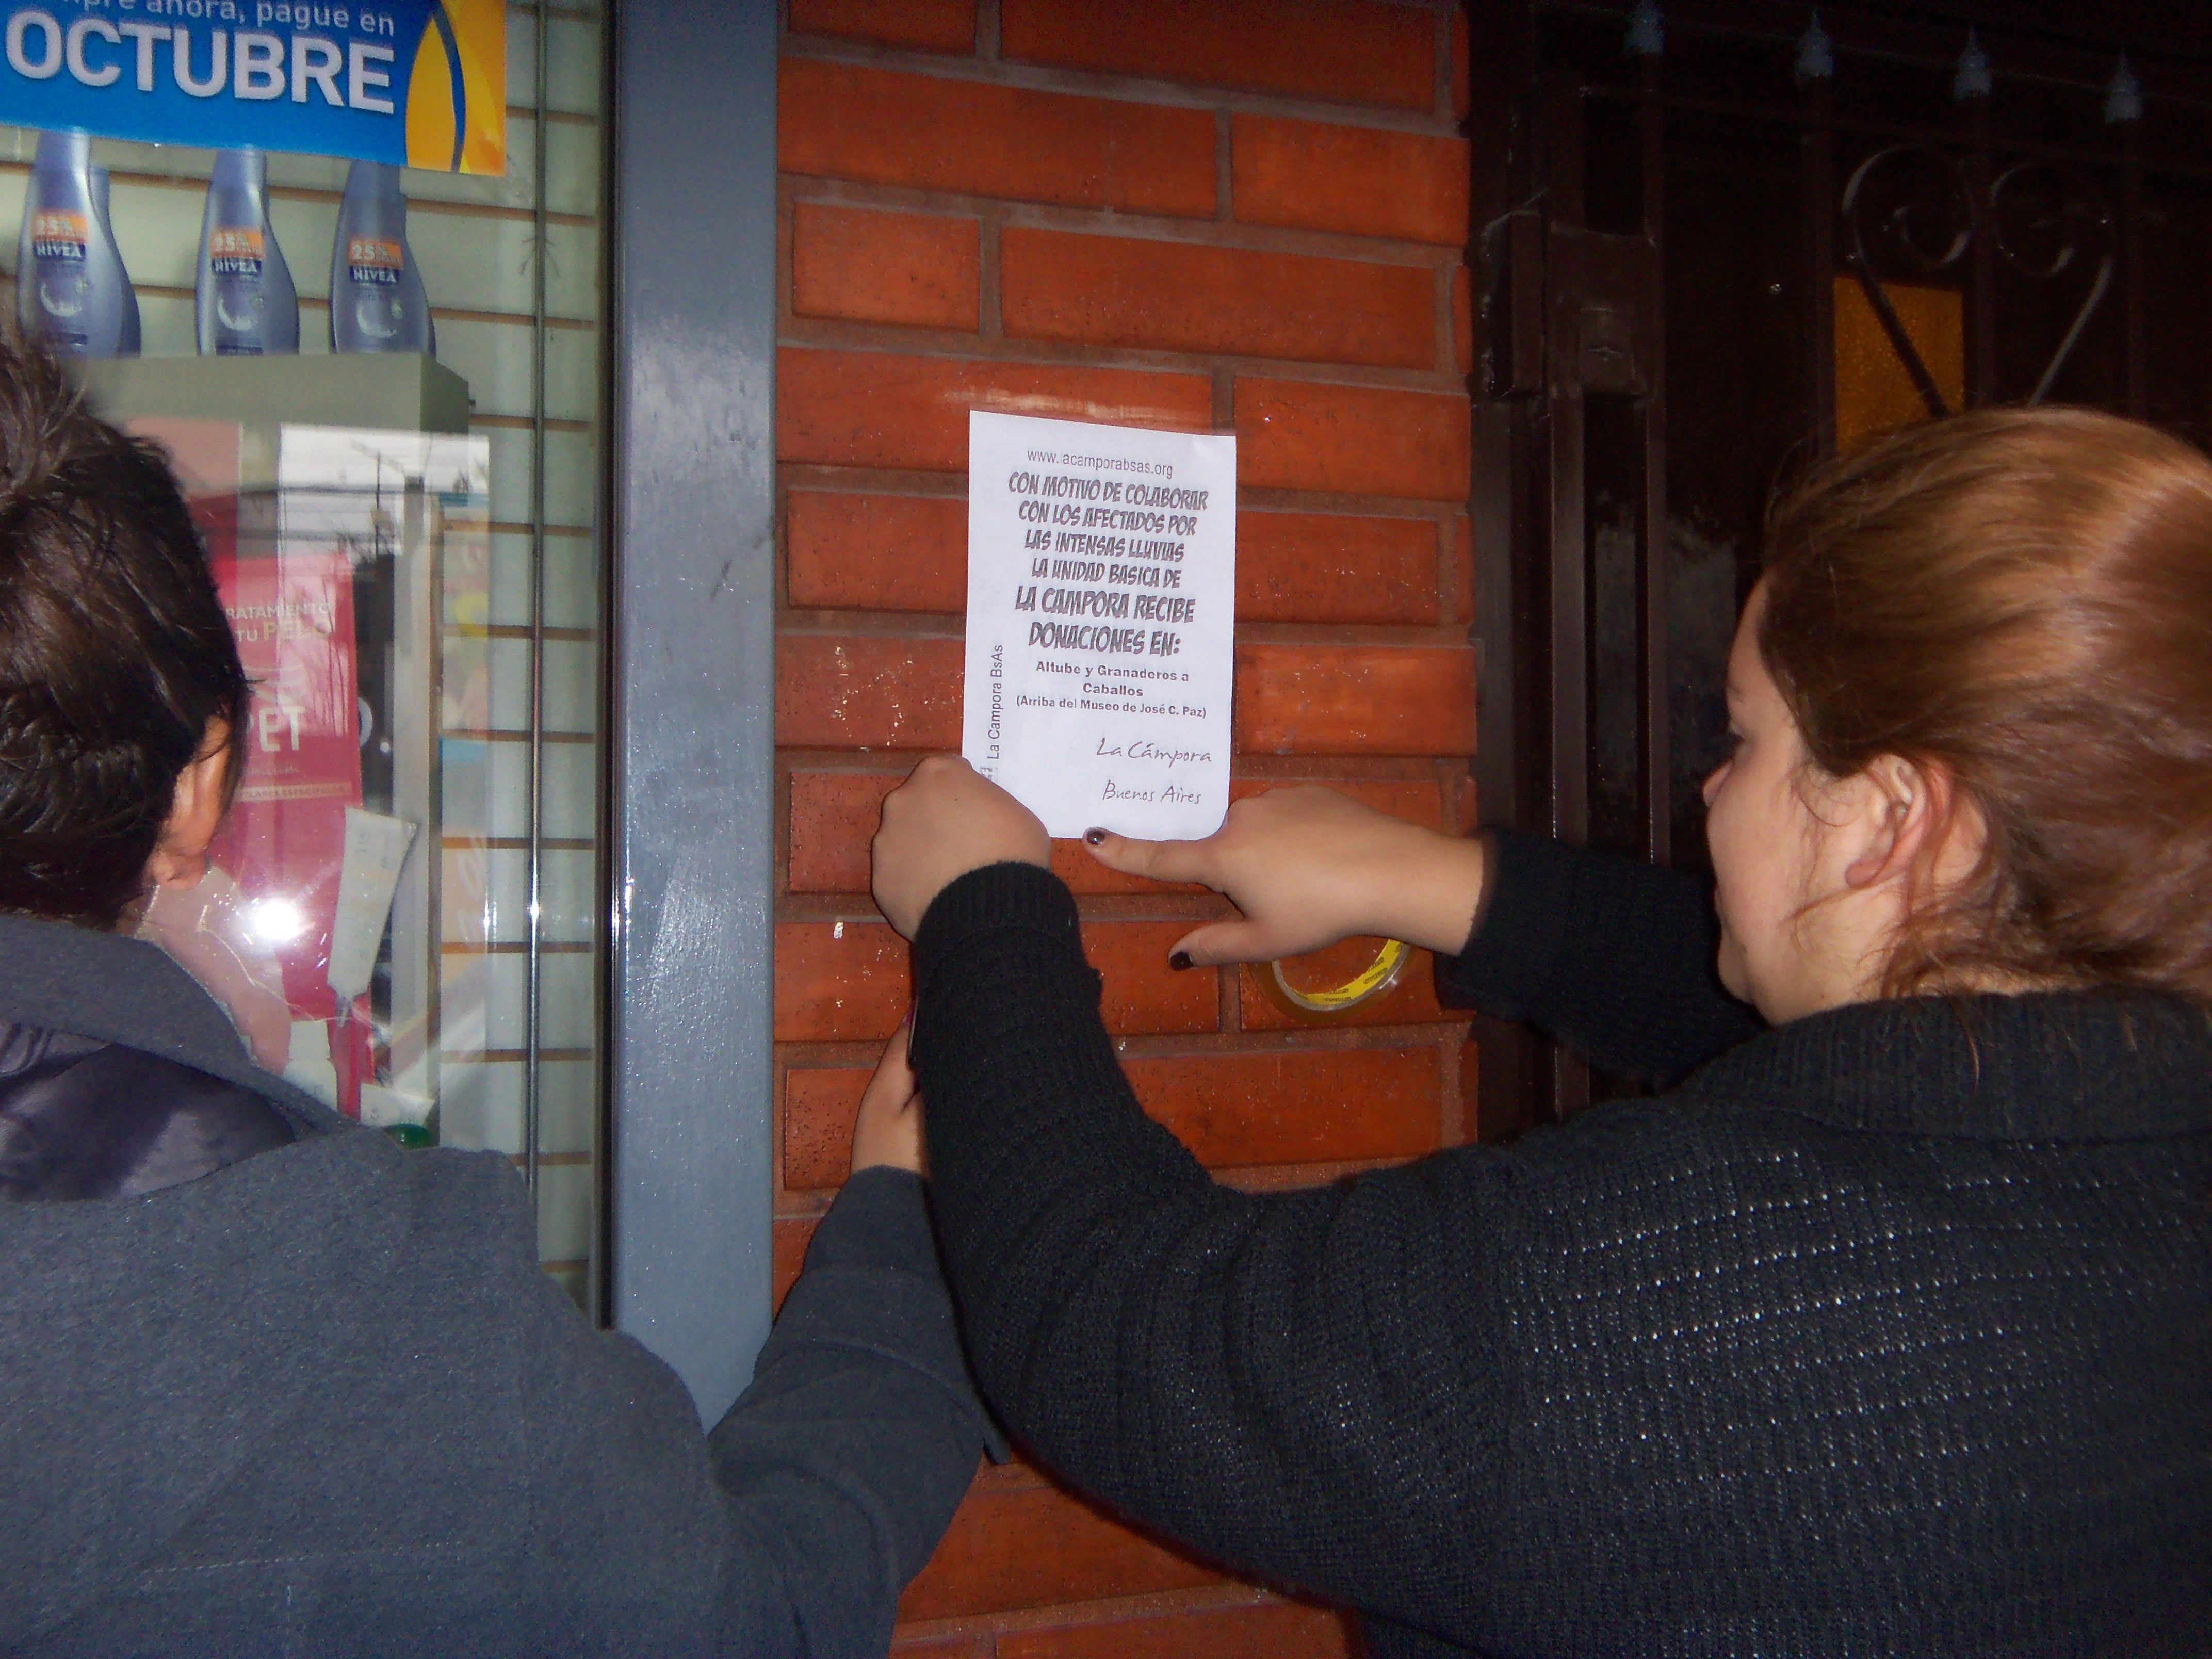 pre ahora, pague en
OCTUBRE
25%
NIVEA
25%
NIVEA
25%
NIVEA
RATAMIENTO
TU PELO
PET
www.lacamporabsas.org
CON MOTIVO DE COLABORAR
CON LOS AFECTADOS POR
LAS INTENSAS LLUVIAS
LA UNIDAD BASICA DE
LA CAMPORA RECIBE
DONACIONES EN:
Altube y Granaderos a
Caballos
(Arriba del Museo de José C. Paz)
La Cámpora
Buenos Aires
La Campora BsAs